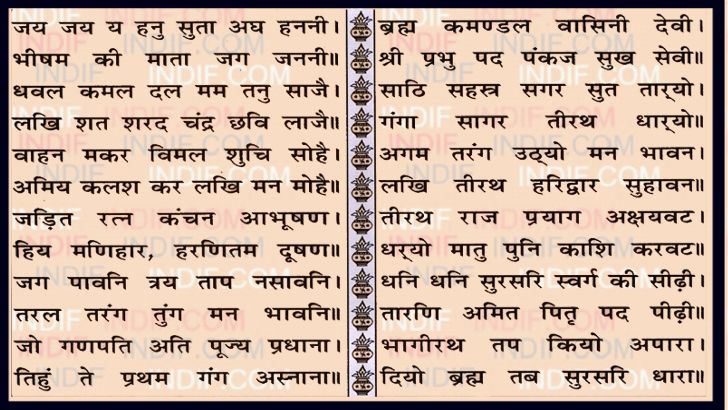 जय जय य हनु सुता अघ हननी।
भीषम की माता जग जननी॥
धवल कमल दल मम तनु साजै।
लखि शत शरद चंद्र छवि लाजै॥
वाहन मकर विमल शुचि सोहै।
अमिय कलश कर लखि मन मोहै॥
जड़ित रत्न कंचन आभूषण।
हिय मणिहार, हरणितम दूषण॥
जग पावनि त्रय ताप नसावनि।
तरल तरंग तुंग मन भावनि॥
जो गणपति अति पूज्य प्रधाना।
तिहुं ते प्रथम गंग अस्नाना॥
ब्रह्म कमण्डल वासिनी देवी।
श्री प्रभु पद पंकज सुख सेवी॥
साठि सहस्त्र सगर सुत तार्‌यो।
गंगा सागर तीरथ धार्‌यो॥
अगम तरंग उठ्‌यो मन भावन।
लखि तीरथ हरिद्वार सुहावन॥
तीरथ राज प्रयाग अक्षयवट।
धर्‌यो मातु पुनि काशि करवट॥
धनि धनि सुरसरि स्वर्ग की सीढ़ी।
तारणि अमित पितृ पद पीढ़ी॥
भागीरथ तप कियो अपारा।
दियो ब्रह्म तब सुरसरि धारा॥
INDIF.COM